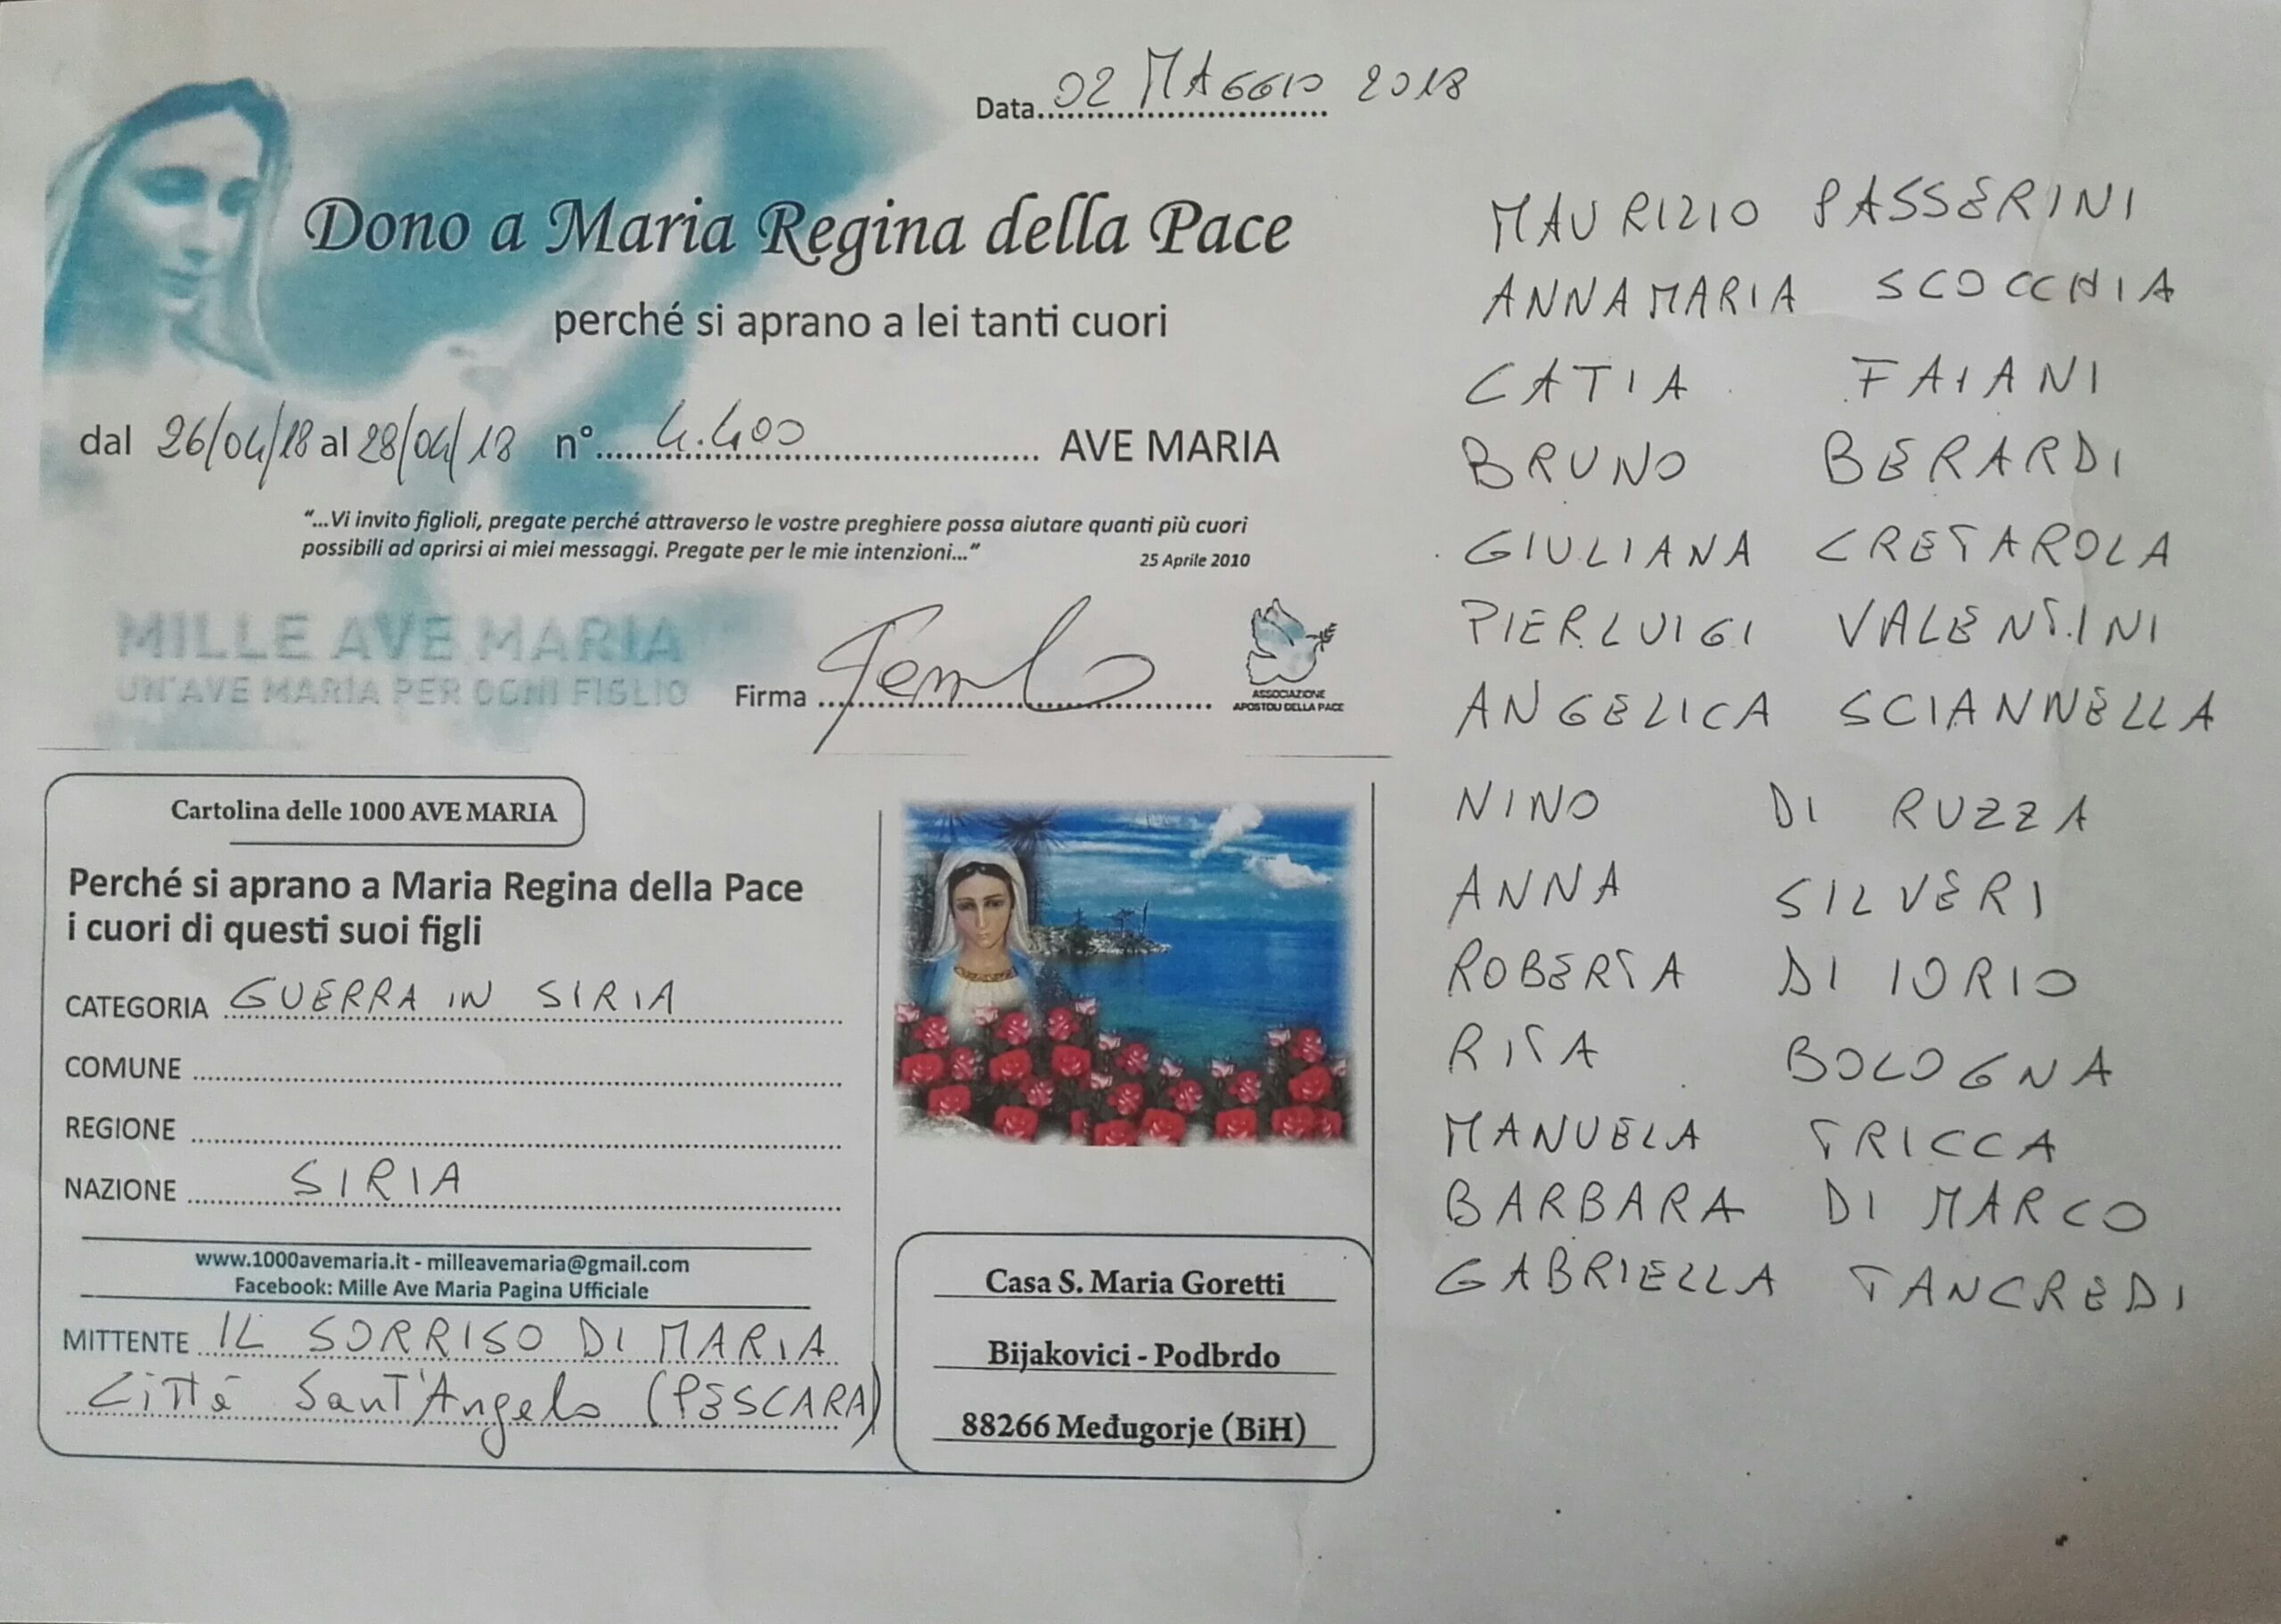 Data 02 MAGGIO 2018
Dono a Maria Regina della Pace
perché si aprano a lei tanti cuori
dal 26/04/18 al 28/04/18 n° 4.400 AVE MARIA
“...Vi invito figlioli, pregate perché attraverso le vostre preghiere possa aiutare quanti più cuori
possibili ad aprirsi ai miei messaggi. Pregate per le mie intenzioni...“
25 Aprile 2010
MILLE AVE MARIA
UN'AVE MARIA PER OGNI FIGLIO
Firma
ASSOCIAZIONE
APOSTOLI DELLA PACE
Cartolina delle 1000 AVE MARIA
Perché si aprano a Maria Regina della Pace
i cuori di questi suoi figli
CATEGORIA GUERRA IN SIRIA
COMUNE
REGIONE
NAZIONE SIRIA
www.1000avemaria.it - milleavemaria@gmail.com
Facebook: Mille Ave Maria Pagina Ufficiale
MITTENTE IL SORRISO DI MARIA
Città Sant'Angelo (PESCARA)
Casa S. Maria Goretti
Bijakovici - Podbrdo
88266 Međugorje (BiH)
MAURIZIO PASSERINI
ANNAMARIA SCOCCHIA
CATIA FAIANI
BRUNO BERARDI
GIULIANA CRETAROLA
PIERLUIGI VALENTINI
ANGELICA SCIANNELLA
NINO DI RUZZA
ANNA SILVERI
ROBERTA DI IORIO
RITA BOLOGNA
MANUELA TRICCA
BARBARA DI MARCO
GABRIELLA TANCREDI